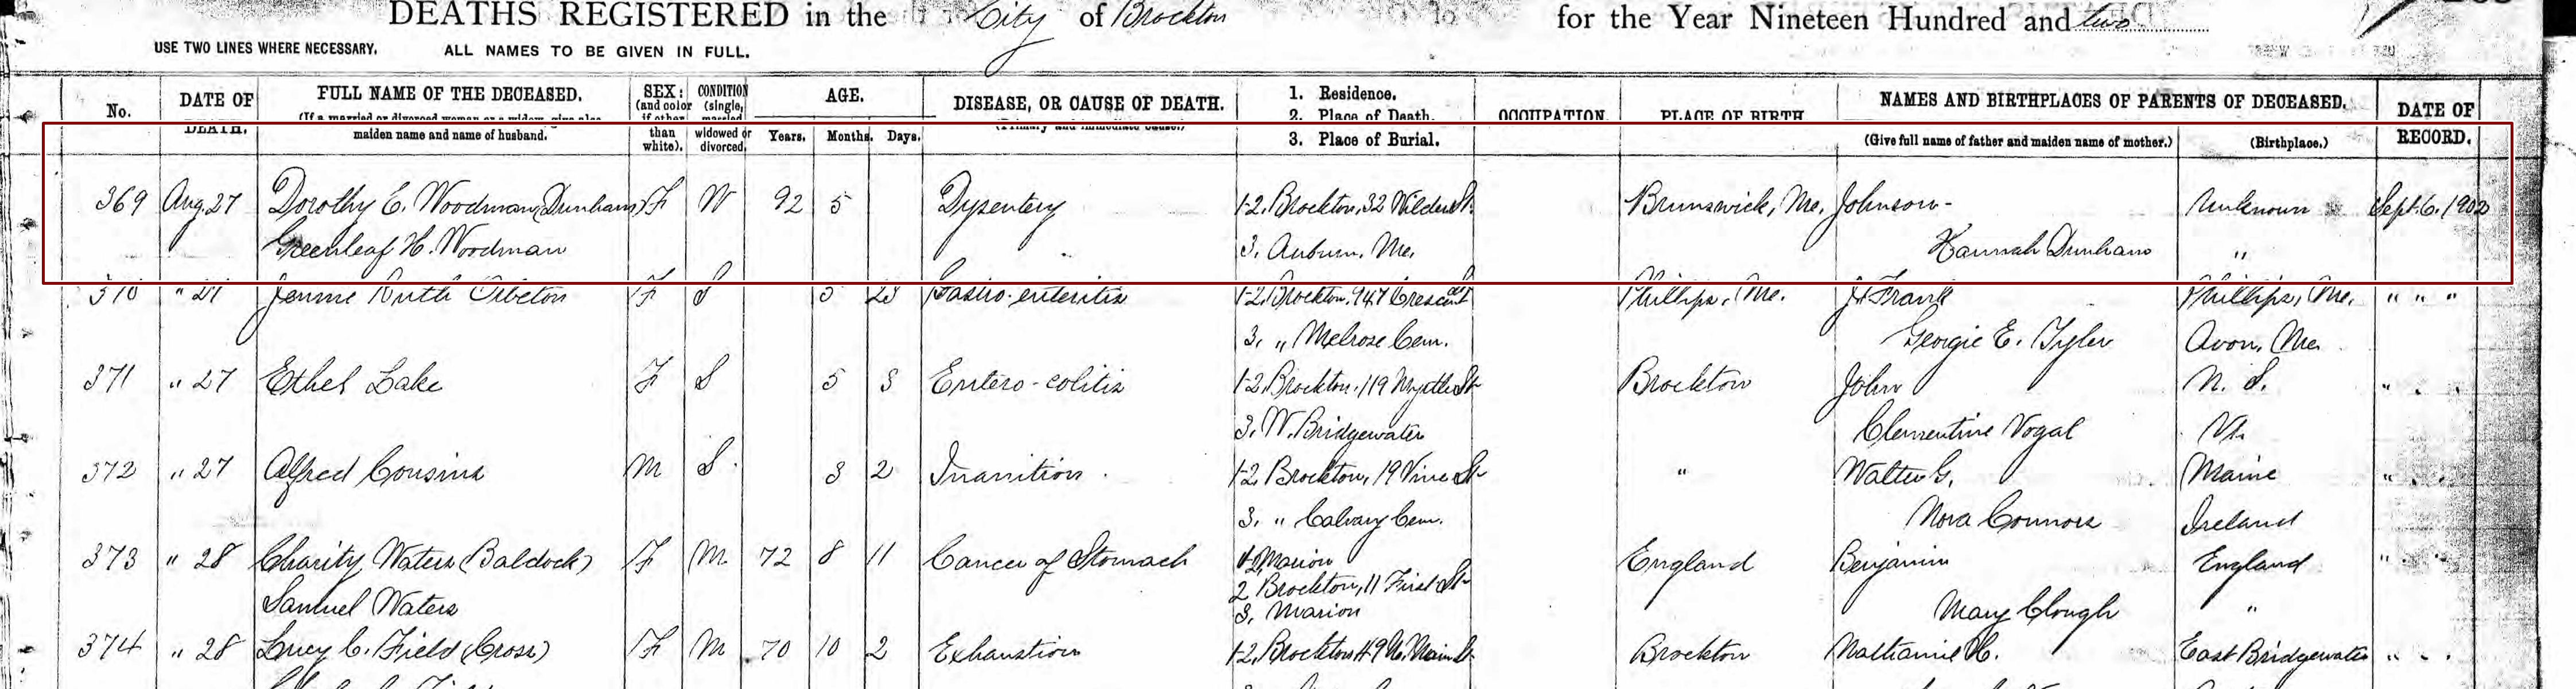 DEATHS REGISTERED in the City of Brockton for the Year Nineteen Hundred and two
USE TWO LINES WHERE NECESSARY. ALL NAMES TO BE GIVEN IN FULL.
No. DATE OF DEATH. FULL NAME OF THE DECEASED. (If a married or divorced woman or a widow, give also maiden name and name of husband. SEX: (and color if other than white). CONDITION (single, married widowed or divorced. AGE. Years. Months. Days. DISEASE, OR CAUSE OF DEATH. (Primary and immediate cause.) 1. Residence. 2. Place of Death. 3. Place of Burial. OCCUPATION. PLACE OF BIRTH NAMES AND BIRTHPLACES OF PARENTS OF DECEASED. (Give full name of father and maiden name of mother.) (Birthplace.) DATE OF RECORD.
369 Aug. 27 Dorothy E. Woodman (Dunham) F W 92 5 Dysentery 1-2. Brockton, 32 Wilder St. Brunswick, Me. Johnson - Unknown Sept. 6. 1902
Greenleaf H. Woodman 3. Auburn, Me. Hannah Dunham "
370 " 27 Jennie Ruth F S 5 23 Gastro-enteritis 1-2. Brockton. 947 Crescent St Phillips, Me. J. Frank Phillips, Me. " " "
3. " Melrose Cem. Georgie E. Tyler Avon, Me.
371 " 27 Ethel Lake F S 5 3 Entero-colitis 1-2. Brockton. 119 Myrtle St Brockton John N. S. "
3. W. Bridgewater Clementine Vogal Vt.
372 " 27 Alfred Cousins M S. 3 2 Inanition 1-2. Brockton, 19 Vine St " Walter G. Maine "
3. " Calvary Cem. Nora Connors Ireland
373 " 28 Charity Waters (Baldock) F M. 72 8 11 Cancer of Stomach 1. Marion England Benjamin England "
2 Brockton, 11 First St
Samuel Waters 3. Marion Mary Clough "
374 " 28 Lucy C. Field (Cross) F M 70 10 2 Exhaustion 1-2. Brockton 49 N. Main St Brockton Nathaniel H. East Bridgewater "